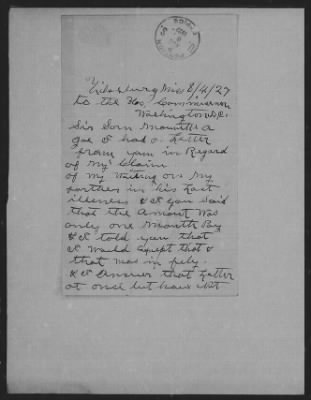 Vicksburg Miss 8/4/27
to the Hon Commissioner
Washington D.C.
Sir Som Mounths a
goe I had a Letter
fram yam in Regard
of My Claim
of My Waiting on My
forther in his Last
illeness & I yau Said
that the amount Was
only one Mounth Pay
& I told yau that
I Would Except that &
that was in
& I answer that Letter
at once but have Not